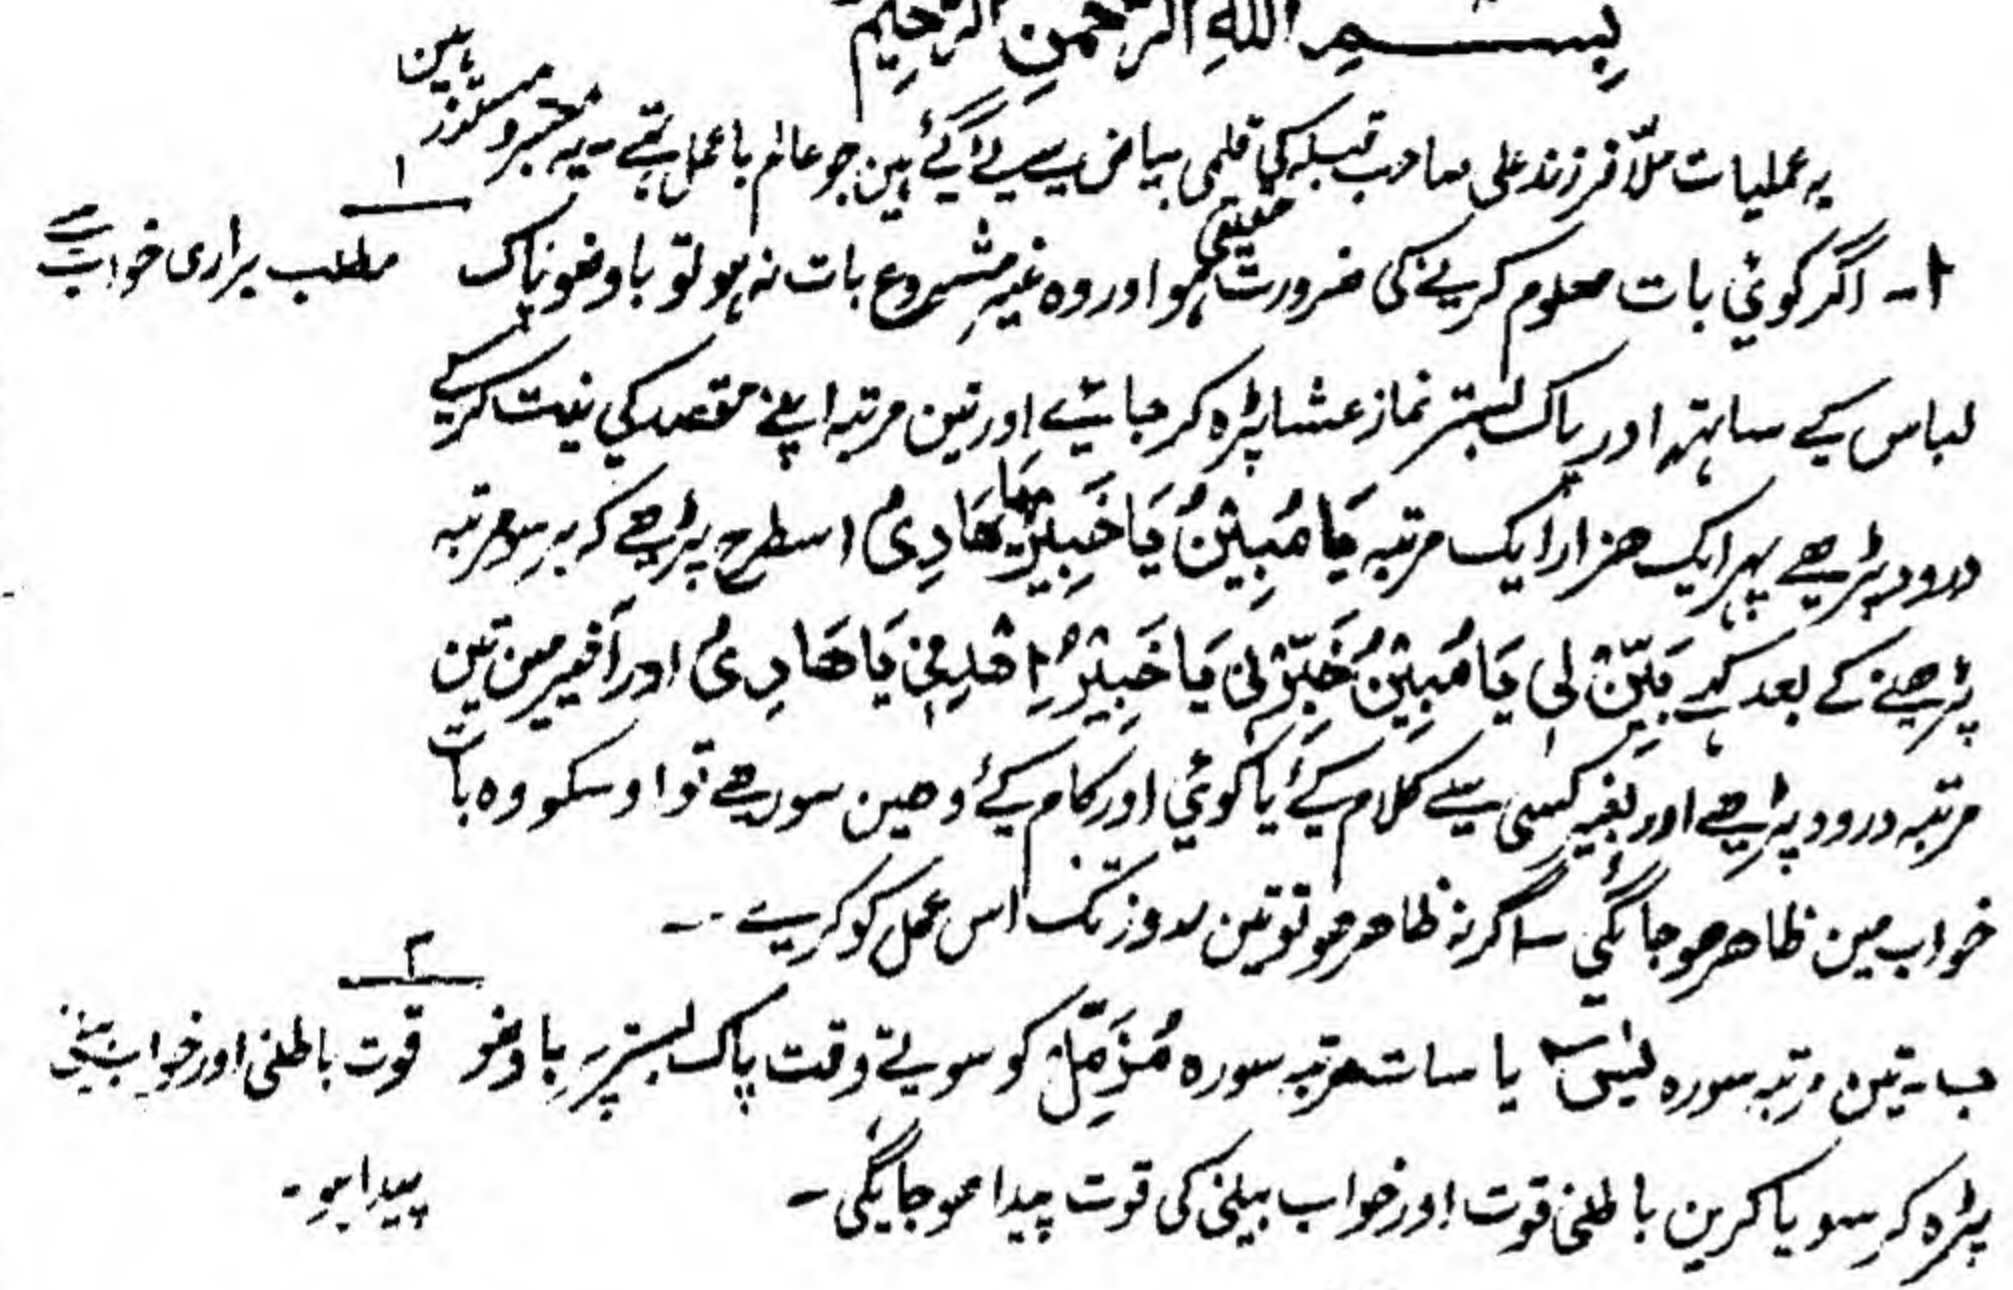 بِسْمِ اللهِ الرَّحْمٰنِ الرَّحِيْمِ
یہ عملیات ملّا فرزند علی صاحب قبلہ کی قلمی بیاض سے لے گئے ہین جو عالم با عمل تھے ۔ یہ مجرب و مستند ہین
۱
۱۔ اگر کوئی بات معلوم کرنے کی ضرورت حقیقی ہو اور وہ غیر مشروع بات نہ ہو تو با وضو پاک
مطلب براری خواب سے
لباس کے ساتہہ اور پاک بستر نماز عشا پڑہ کر جائے اور تین مرتبہ اپنے مقصد کی نیت کر کے
درود پڑھے پہر ایک ھزار ایک مرتبہ یَا مُبِیْنُ یَا خَبِیْرُ یَا ھَادِیُ اسطرح پڑھے کہ ہر سو مرتبہ
پڑھنے کے بعد کہے بَیِّنْ لِی یَا مُبِیْنُ خَبِّرْنِی یَا خَبِیْرُ اِھْدِنِی یَا ھَادِیُ اور آخیر مین تین
مرتبہ درود پڑھے اور بغیر کسی سے کلام کئے یا کوئی اور کام کئے وھین سورھے تو اوسکو وہ بات
خواب مین ظاھر ھو جائگی ۔ اگر نہ ظاھر ھو تو تین روز تک اس عمل کو کرے ۔
۲
ب ۔ تین مرتبہ سورہ یٰس یا سات مرتبہ سورہ مُزَمِّل کو سوتے وقت پاک بستر پر با وضو
قوت باطنی اور خواب بینی
پڑہ کر سویا کرین باطنی قوت اور خواب بینی کی قوت پیدا ھو جائیگی ۔
پیدا ہو ۔